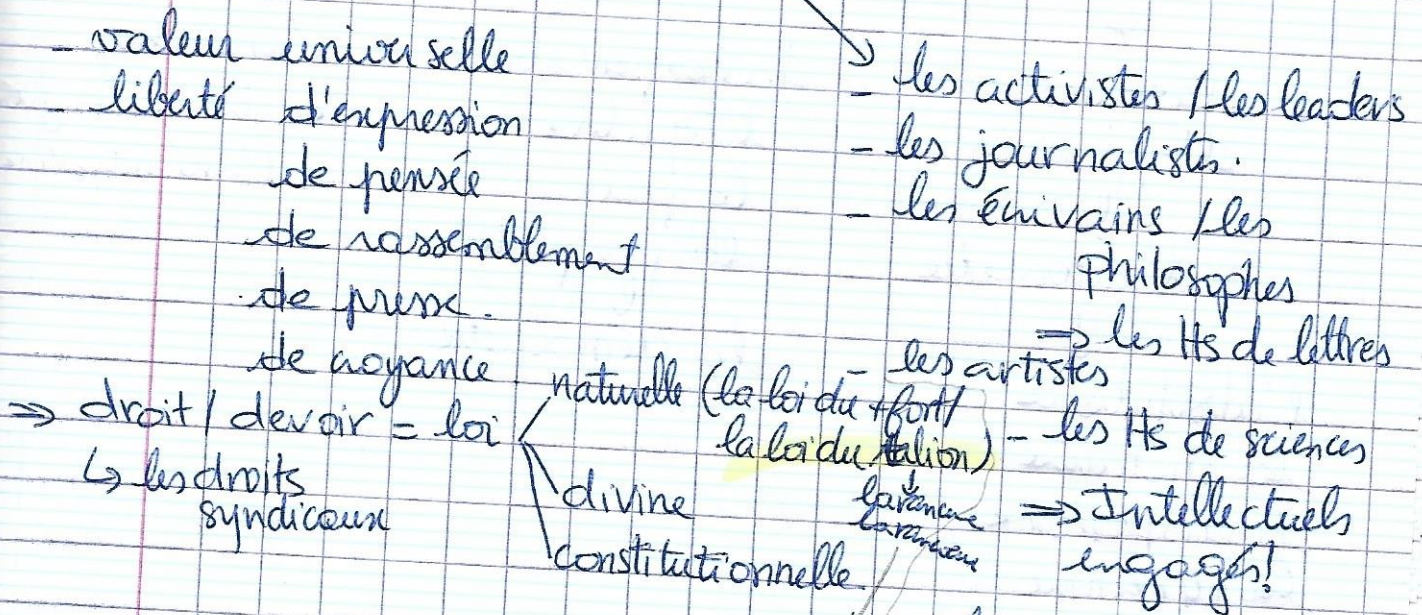 - valeur universelle
- liberté d'expression
de pensée
de rassemblement
de presse.
de croyance
⇒ droit / devoir = loi
↳ les droits
syndicaux
naturelle (la loi du + fort /
la loi du talion)
↓
la rancune
divine
constitutionnelle
- les activistes / les leaders
- les journalistes.
- les écrivains / les
philosophes
⇒ les Hs de lettres
- les artistes
- les Hs de sciences
⇒ Intellectuels
engagés!